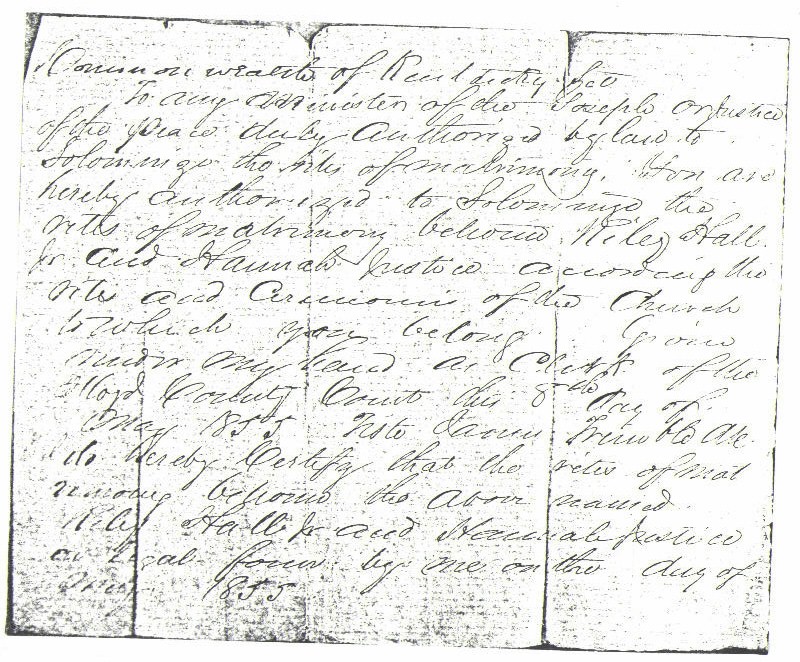 Commonwealth of Kentucky Sct
To any Minister of the Gosple or Justice
of the peace duly Authorized by law to
Solomnize the rites of matrimony. You are
hereby authorized to Solomnize the
rites of matrimony between Riley Hall
Jr and Hannah Justice according the
rites and Ceremonies of the Church
to which you belong Given
under my hand as Clerk of the
Floyd County Court this 8th Day of
May 1855 Teste James Trimble
do hereby Certify that the rites of mat
rimony between the above named
Riley Hall Jr and Hannah Justice
legal by me on the day of
1855